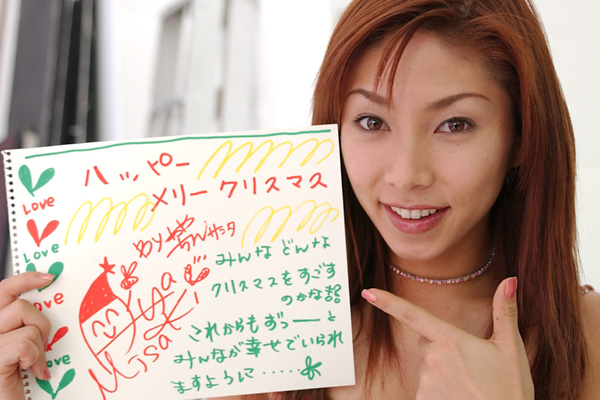 ハッピー
メリークリスマス
Love
Love
Love
Love
Love
By
サンタ
Aya
Misaki
みんな どんな
クリスマスをすごす
のかな
これからも ずっーと
みんなが幸せでいられ
ますように・・・・・